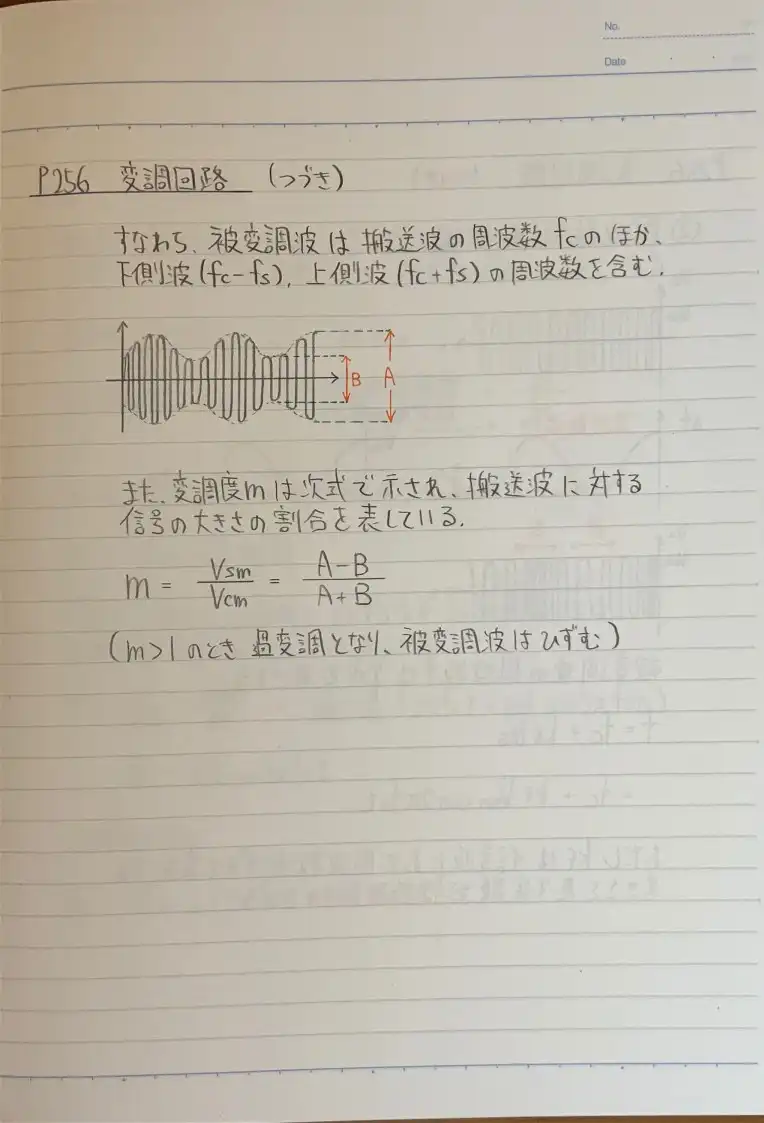 No.
Date
P256 変調回路 (つづき)
すなわち、被変調波は搬送波の周波数fcのほか、
下側波(fc-fs), 上側波(fc+fs)の周波数を含む.
B A
また、変調度mは次式で示され、搬送波に対する
信号の大きさの割合を表している.
m = Vsm/Vcm = A-B/A+B
(m>1のとき過変調となり、被変調波はひずむ)